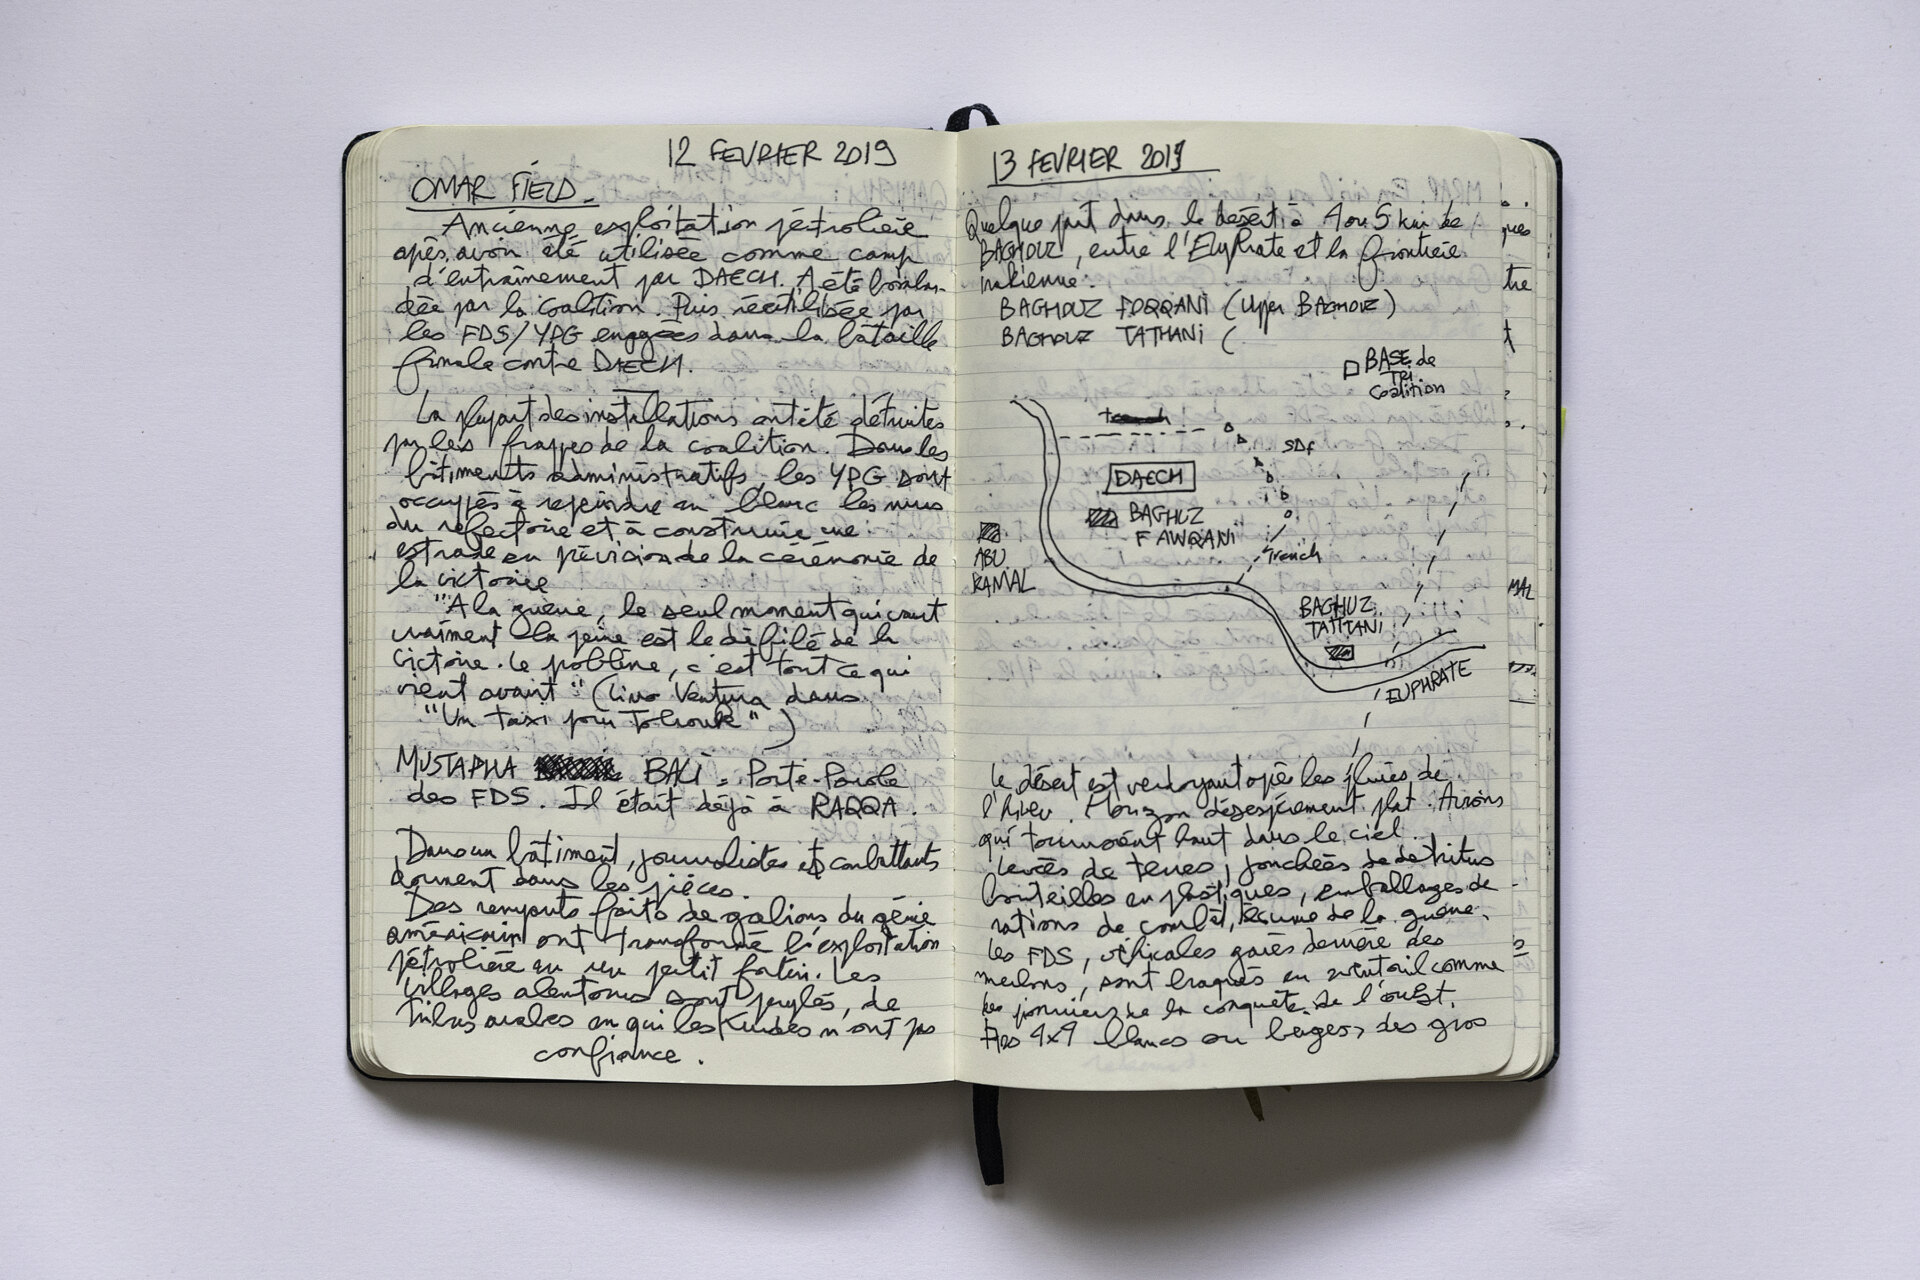 12 FEVRIER 2019
OMAR FIELD
Ancienne exploitation pétrolière
après avoir été utilisée comme camp
d'entraînement par DAECH. A été bombar-
dée par la coalition. Puis réutilisée par
les FDS/YPG engagés dans la bataille
finale contre DAECH.
La plupart des installations ont été détruites
par les frappes de la coalition. Dans les
bâtiments administratifs, les YPG sont
occupés à repeindre en blanc les murs
du réfectoire et à construire une
estrade en prévision de la cérémonie de
la victoire
"A la guerre, le seul moment qui vaut
vraiment la peine est le défilé de la
victoire. Le problème, c'est tout ce qui
vient avant" (Lino Ventura dans
"Un taxi pour Tobrouk")
MUSTAPHA BALI = Porte-Parole
des FDS. Il était déjà à RAQQA.
Dans un bâtiment, journalistes et combattants
dorment dans les pièces.
Des remparts faits de gabions du génie
américain ont transformé l'exploitation
pétrolière en un petit fortin. Les
villages alentours sont peuplés, de
tribus arabes en qui les Kurdes n'ont pas
confiance.
13 FEVRIER 2019
Quelque part dans le désert à 4 ou 5 km de
BAGHOUZ, entre l'Euphrate et la frontière
irakienne.
BAGHOUZ FOQQANI (Upper BAGHOUZ)
BAGHOUZ TATHANI (
BASE de
TRI
Coalition
SDF
DAECH
BAGHUZ
FAWQANI
ABU
RAMAL
trench
BAGHUZ
TAHTANI
EUPHRATE
Le désert est verdoyant après les pluies de
l'hiver. Horizon désespérement plat. Avions
qui tournoient haut dans le ciel.
Levées de terres, jonchées de détritus
bouteilles en plastiques, emballages de
rations de combat, écume de la guerre.
Les FDS, véhicules garés derrière des
merlons, sont braqués en éventail comme
les pionniers de la conquête de l'ouest.
Des 4x4 blancs ou beiges, des gros